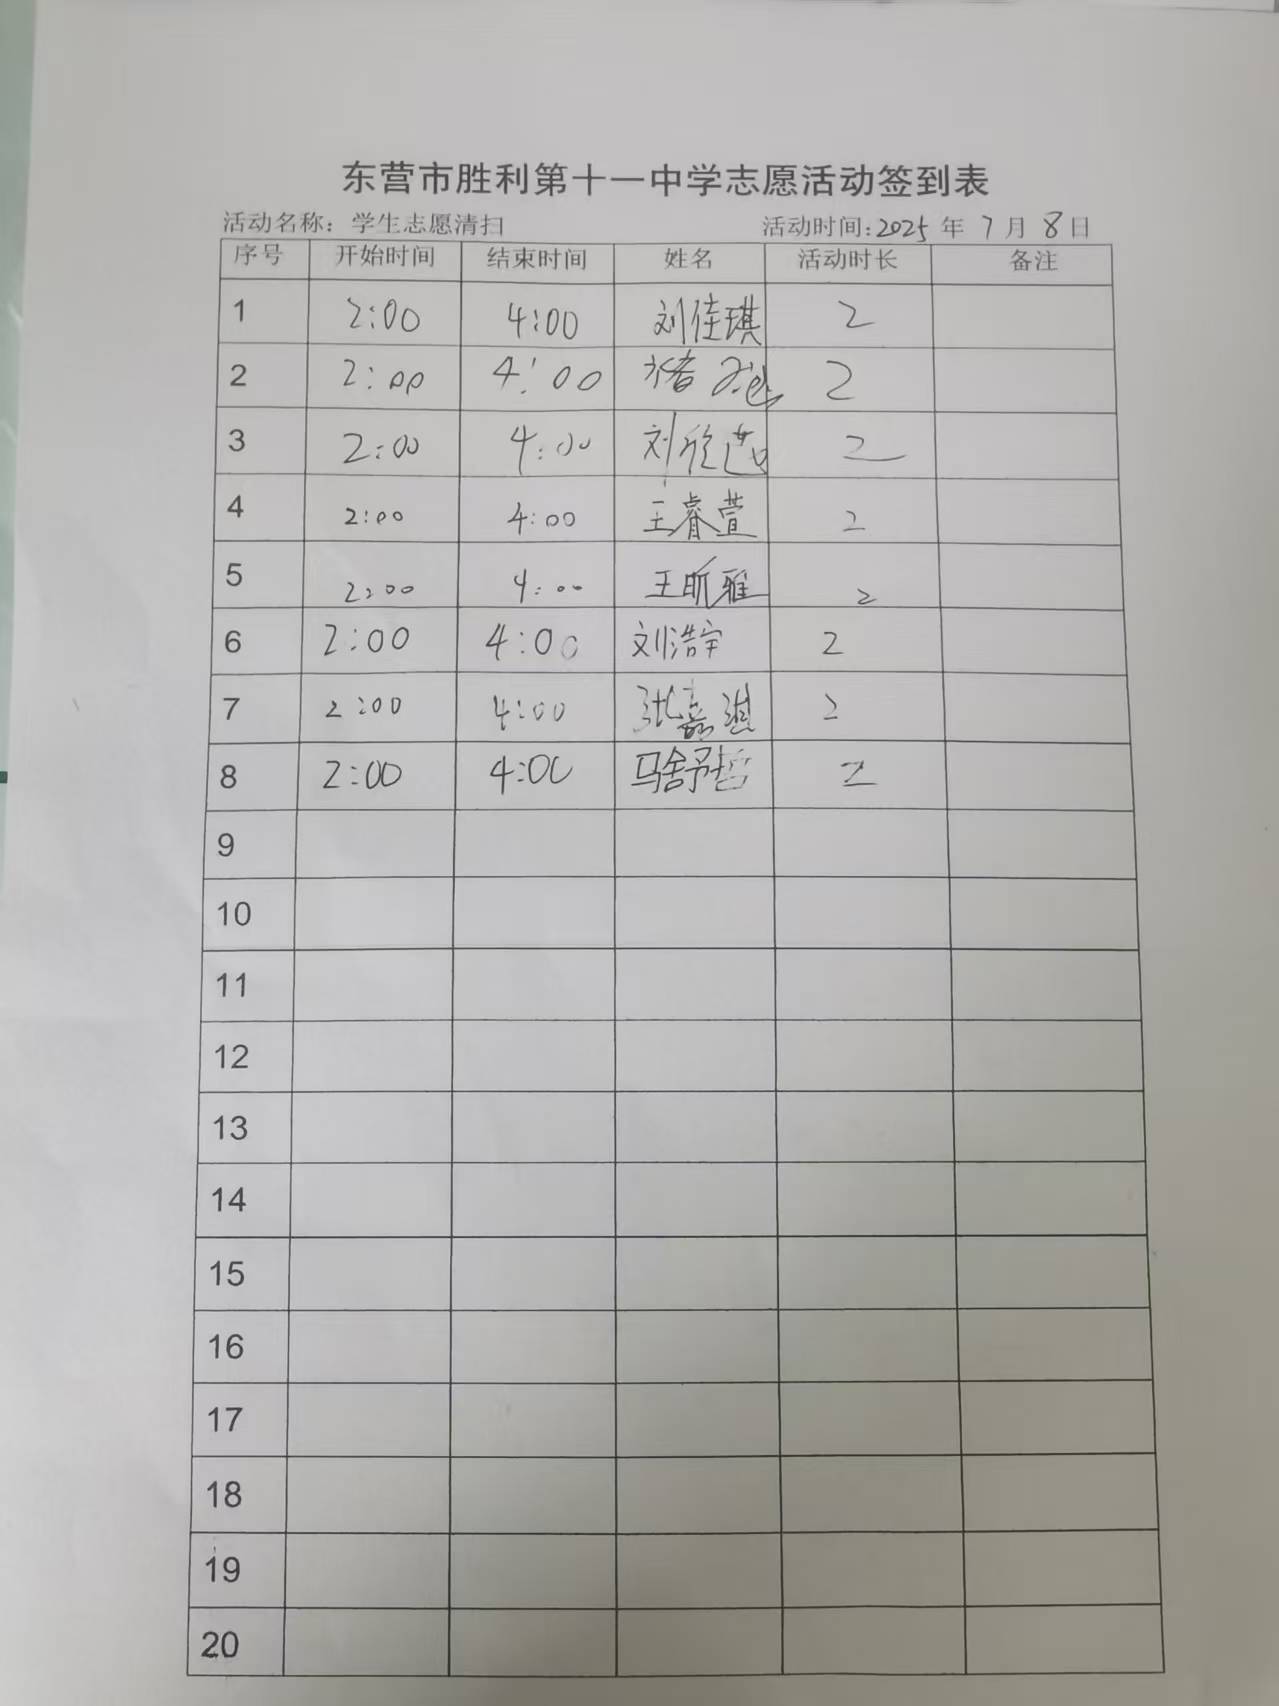 东营市胜利第十一中学志愿活动签到表
活动名称：学生志愿清扫 活动时间：2025年7月8日
序号 开始时间 结束时间 姓名 活动时长 备注
1 2:00 4:00 刘佳琪 2
2 2:00 4:00 2
3 2:00 4:00 刘 2
4 2:00 4:00 王睿萱 2
5 2:00 4:00 王昕雅 2
6 2:00 4:00 刘浩宇 2
7 2:00 4:00 张嘉 2
8 2:00 4:00 马舒哲 2
9
10
11
12
13
14
15
16
17
18
19
20